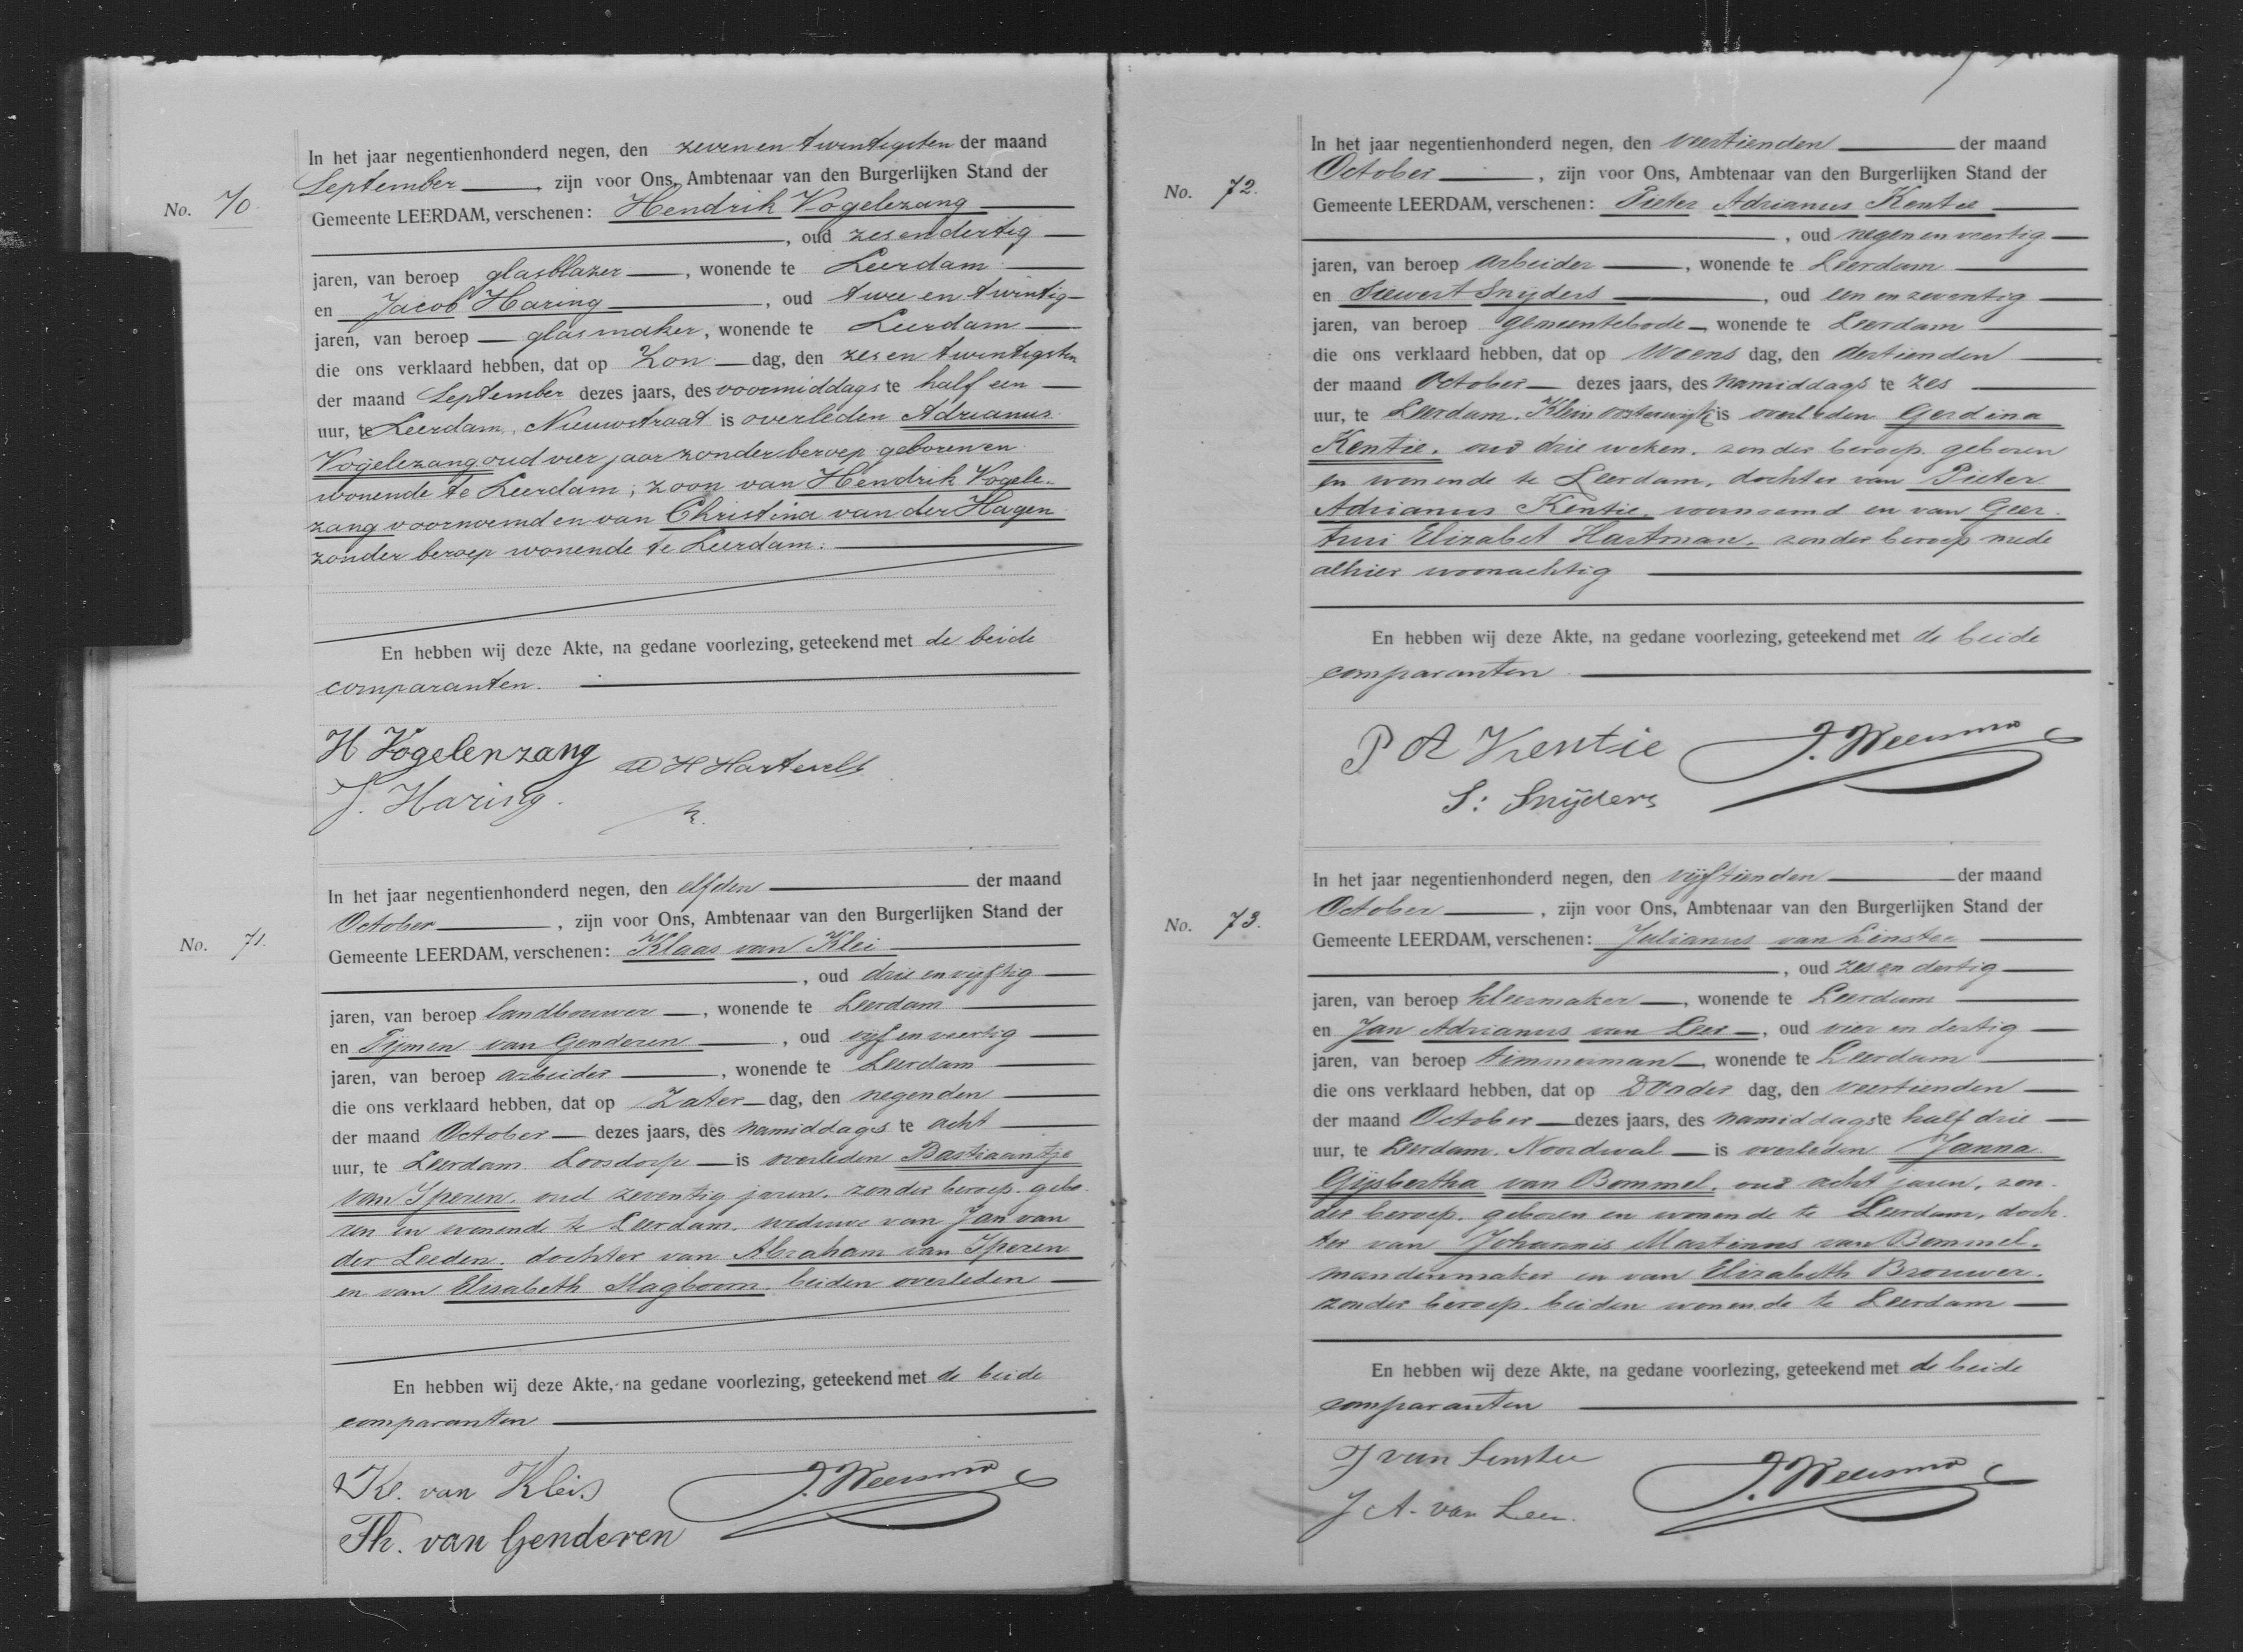 No. 70.
In het jaar negentienhonderd negen, den zevenentwintigsten der maand
September, zijn voor Ons, Ambtenaar van den Burgerlijken Stand der
Gemeente LEERDAM, verschenen: Hendrik Vogelezang
, oud zesendertig
jaren, van beroep glasblazer, wonende te Leerdam
en Jacob Haring, oud tweeentwintig
jaren, van beroep glasmaker, wonende te Leerdam
die ons verklaard hebben, dat op Zondag, den zesentwintigsten
der maand September dezes jaars, des voormiddags te half een
uur, te Leerdam, Nieuwstraat is overleden Adrianus
Vogelezang oud vier jaar zonder beroep geboren en
wonende te Leerdam, zoon van Hendrik Vogele-
zang voornoemd en van Christina van der Hagen
zonder beroep wonende te Leerdam.
En hebben wij deze Akte, na gedane voorlezing, geteekend met de beide
comparanten.
H Vogelenzang
J. Haring.
No. 71.
In het jaar negentienhonderd negen, den elfden der maand
October, zijn voor Ons, Ambtenaar van den Burgerlijken Stand der
Gemeente LEERDAM, verschenen: Klaas van Klei
, oud drie en vijftig
jaren, van beroep landbouwer, wonende te Leerdam
en Tijmen van Genderen, oud vijf en veertig
jaren, van beroep arbeider, wonende te Leerdam
die ons verklaard hebben, dat op Zaterdag, den negenden
der maand October dezes jaars, des namiddags te acht
uur, te Leerdam Loosdorp is overleden Bastiaantje
van Iperen, oud zeventig jaren, zonder beroep, gebo-
ren en wonende te Leerdam, weduwe van Jan van
der Leeden, dochter van Abraham van Iperen
en van Elisabeth Slagboom, beiden overleden
En hebben wij deze Akte, na gedane voorlezing, geteekend met de beide
comparanten
Kl. van Kleis
J. Weersma
Th. van Genderen
No. 72.
In het jaar negentienhonderd negen, den veertienden der maand
October, zijn voor Ons, Ambtenaar van den Burgerlijken Stand der
Gemeente LEERDAM, verschenen: Pieter Adrianus Kentie
, oud negen en veertig
jaren, van beroep arbeider, wonende te Leerdam
en Siewert Snijders, oud een en zeventig
jaren, van beroep gemeentebode, wonende te Leerdam
die ons verklaard hebben, dat op Woensdag, den dertienden
der maand October dezes jaars, des namiddags te zes
uur, te Leerdam. Klein oosterwijk is overleden Gerdina
Kentie, oud drie weken, zonder beroep, geboren
en wonende te Leerdam, dochter van Pieter
Adrianus Kentie, voornoemd en van Geer-
trui Elizabet Hartman, zonder beroep mede
alhier woonachtig
En hebben wij deze Akte, na gedane voorlezing, geteekend met de beide
comparanten
P A Kentie
J. Weersma
S: Snijders
No. 73.
In het jaar negentienhonderd negen, den vijftienden der maand
October, zijn voor Ons, Ambtenaar van den Burgerlijken Stand der
Gemeente LEERDAM, verschenen: Julianus van Linstee
, oud zes en dertig
jaren, van beroep kleermaker, wonende te Leerdam
en Jan Adrianus van Leer, oud vier en dertig
jaren, van beroep timmerman, wonende te Leerdam
die ons verklaard hebben, dat op Donderdag, den veertienden
der maand October dezes jaars, des namiddags te half drie
uur, te Leerdam. Noordwal is overleden Janna
Gijsbertha van Bommel, oud acht jaren, zon-
der beroep, geboren en wonende te Leerdam, doch-
ter van Johannis Martinus van Bommel,
mandenmaker en van Elizabeth Brouwer,
zonder beroep, beiden wonende te Leerdam
En hebben wij deze Akte, na gedane voorlezing, geteekend met de beide
comparanten
J van Linstee
J. Weersma
J A. van Leer.